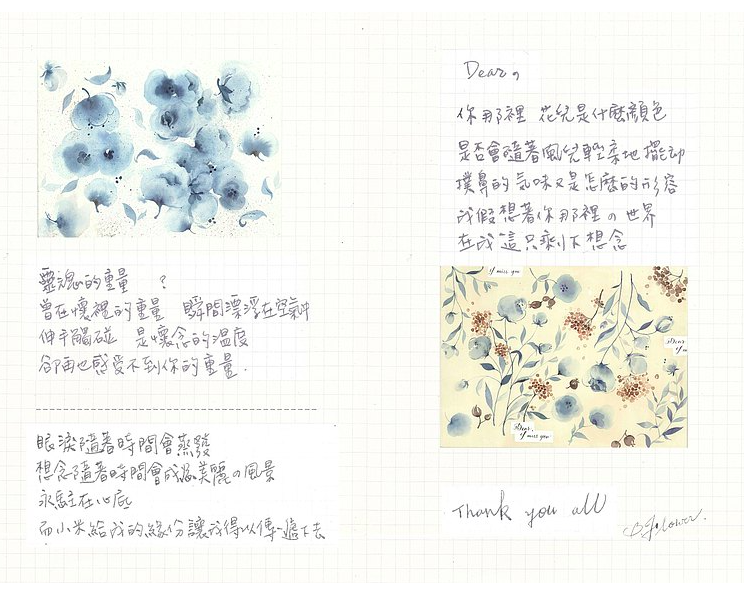 靈魂的重量 ?
曾在懷裡的重量 瞬間漂浮在空氣中
伸手觸碰 是懷念的溫度
卻再也感受不到你的重量.
眼淚隨著時間會蒸發
想念隨著時間會成為美麗の風景
永駐在心底
而小米給我的緣份讓我得以傳遞下去
Dear,
你那裡 花兒是什麼顏色
是否會隨著風兒輕柔地擺动
撲鼻的氣味又是怎麼的形容
我假想著你那裡の世界
在我這只剩下想念
I miss you
Dear,
Dear,
I miss you
Thank you all